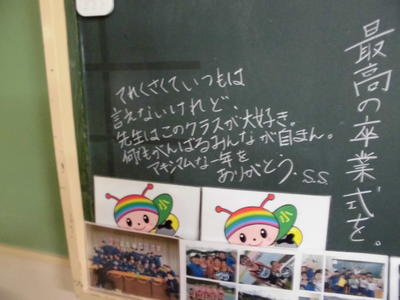 最高の卒業式を。
てれくさくていつもは
言えないけれど、
先生はこのクラスが大好き。
何もがんばるみんなが自まん。
マキシマムな一年を
ありがとう。 S.S
小
小